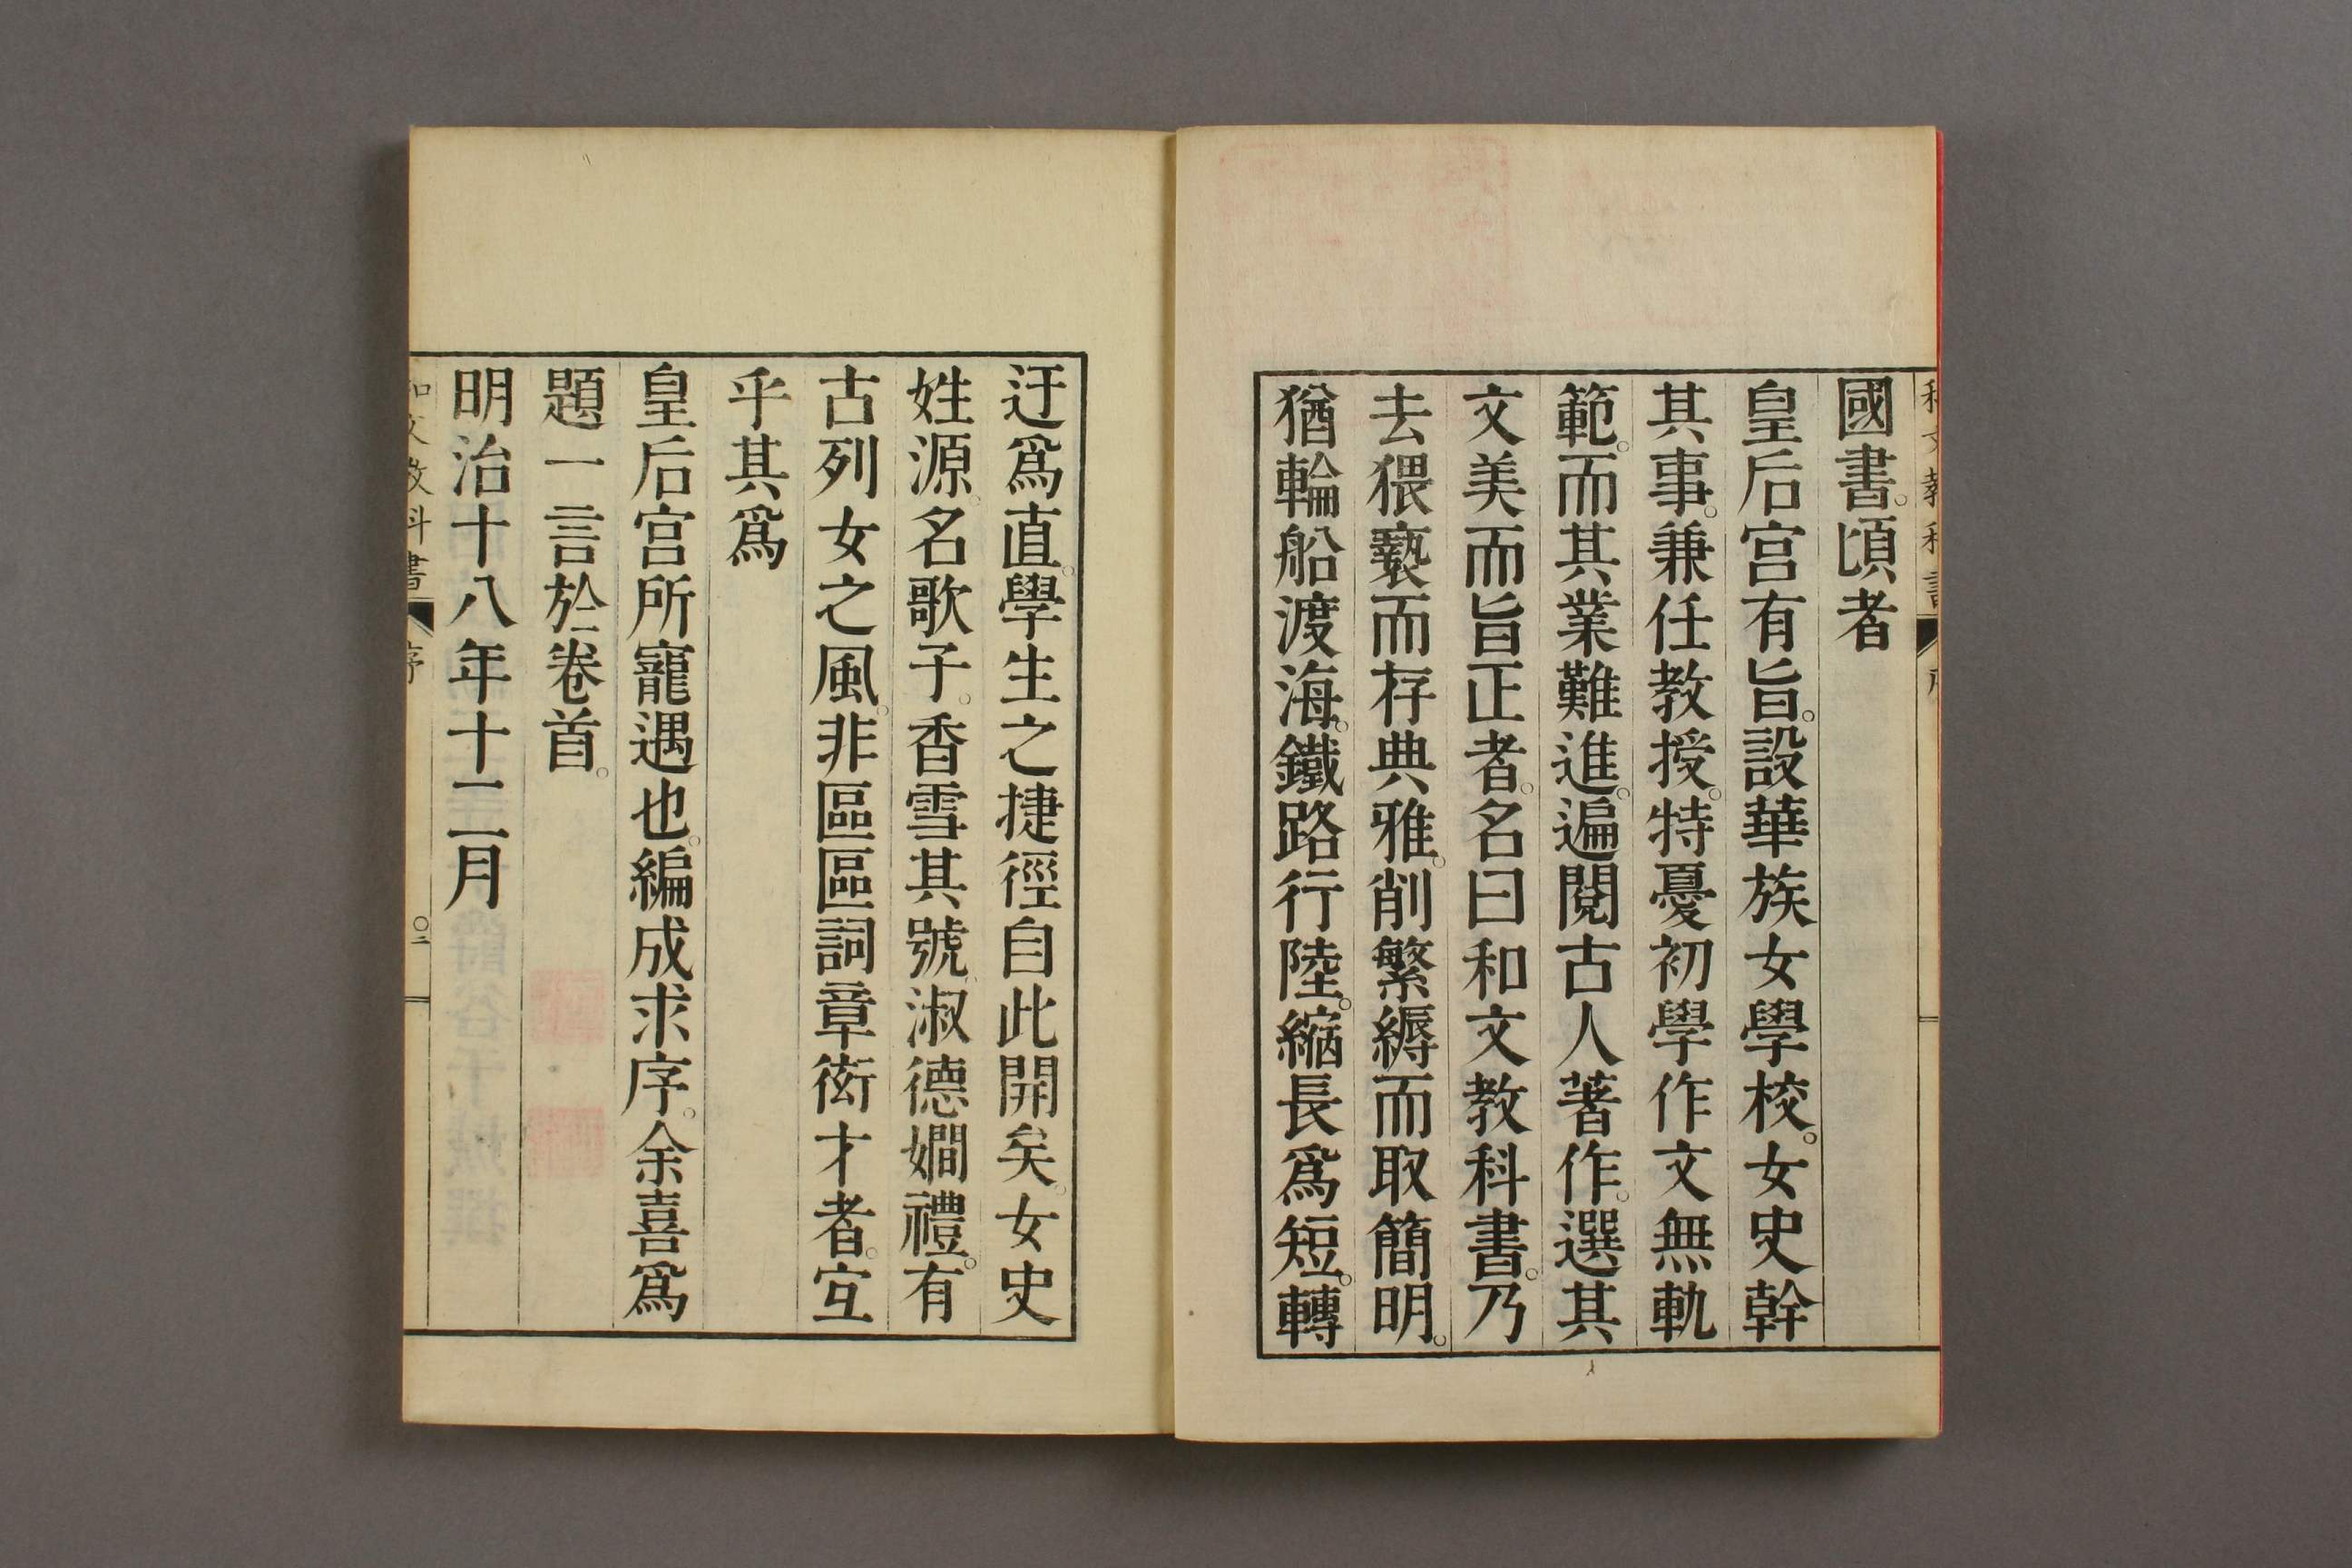 國書。頃者
皇后宮有旨。設華族女學校。女史幹
其事。兼任教授。特憂初學作文無軌
範。而其業難進。遍閱古人著作。選其
文美而旨正者。名曰和文教科書。乃
去猥褻而存典雅。削繁縟而取簡明。
猶輪船渡海。鐵路行陸。縮長爲短。轉
迂爲直。學生之捷徑自此開矣。女史
姓源。名歌子。香雪其號。淑德嫺禮。有
古列女之風。非區區詞章衒才者。宜
乎其爲
皇后宮所寵遇也。編成求序。余喜爲
題一言於卷首。
明治十八年十二月
和文教科書 序 〇二